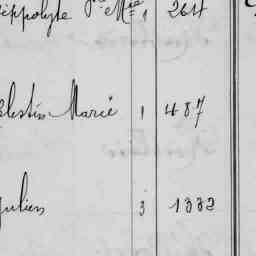 ippolyte Jh Mie 1 264
lestin Marie 1 487
Julien 3 1332